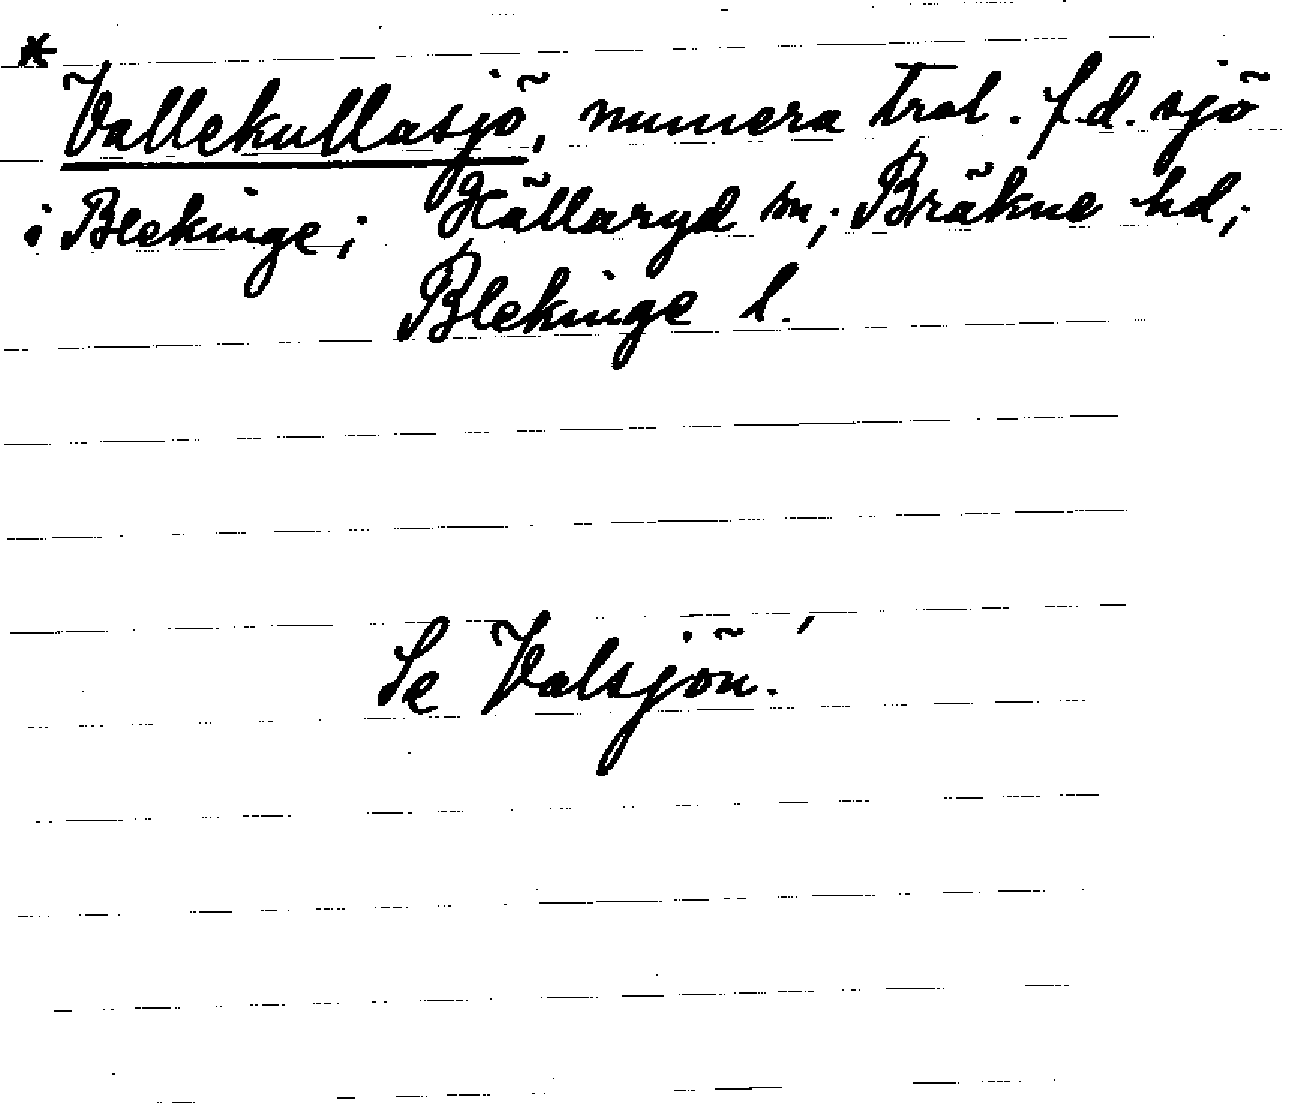 * Vallekullasjö, numera trol. f.d. sjö
i Blekinge; Hällaryd sn; Bräkne hd;
Blekinge l.
Se Valsjön.